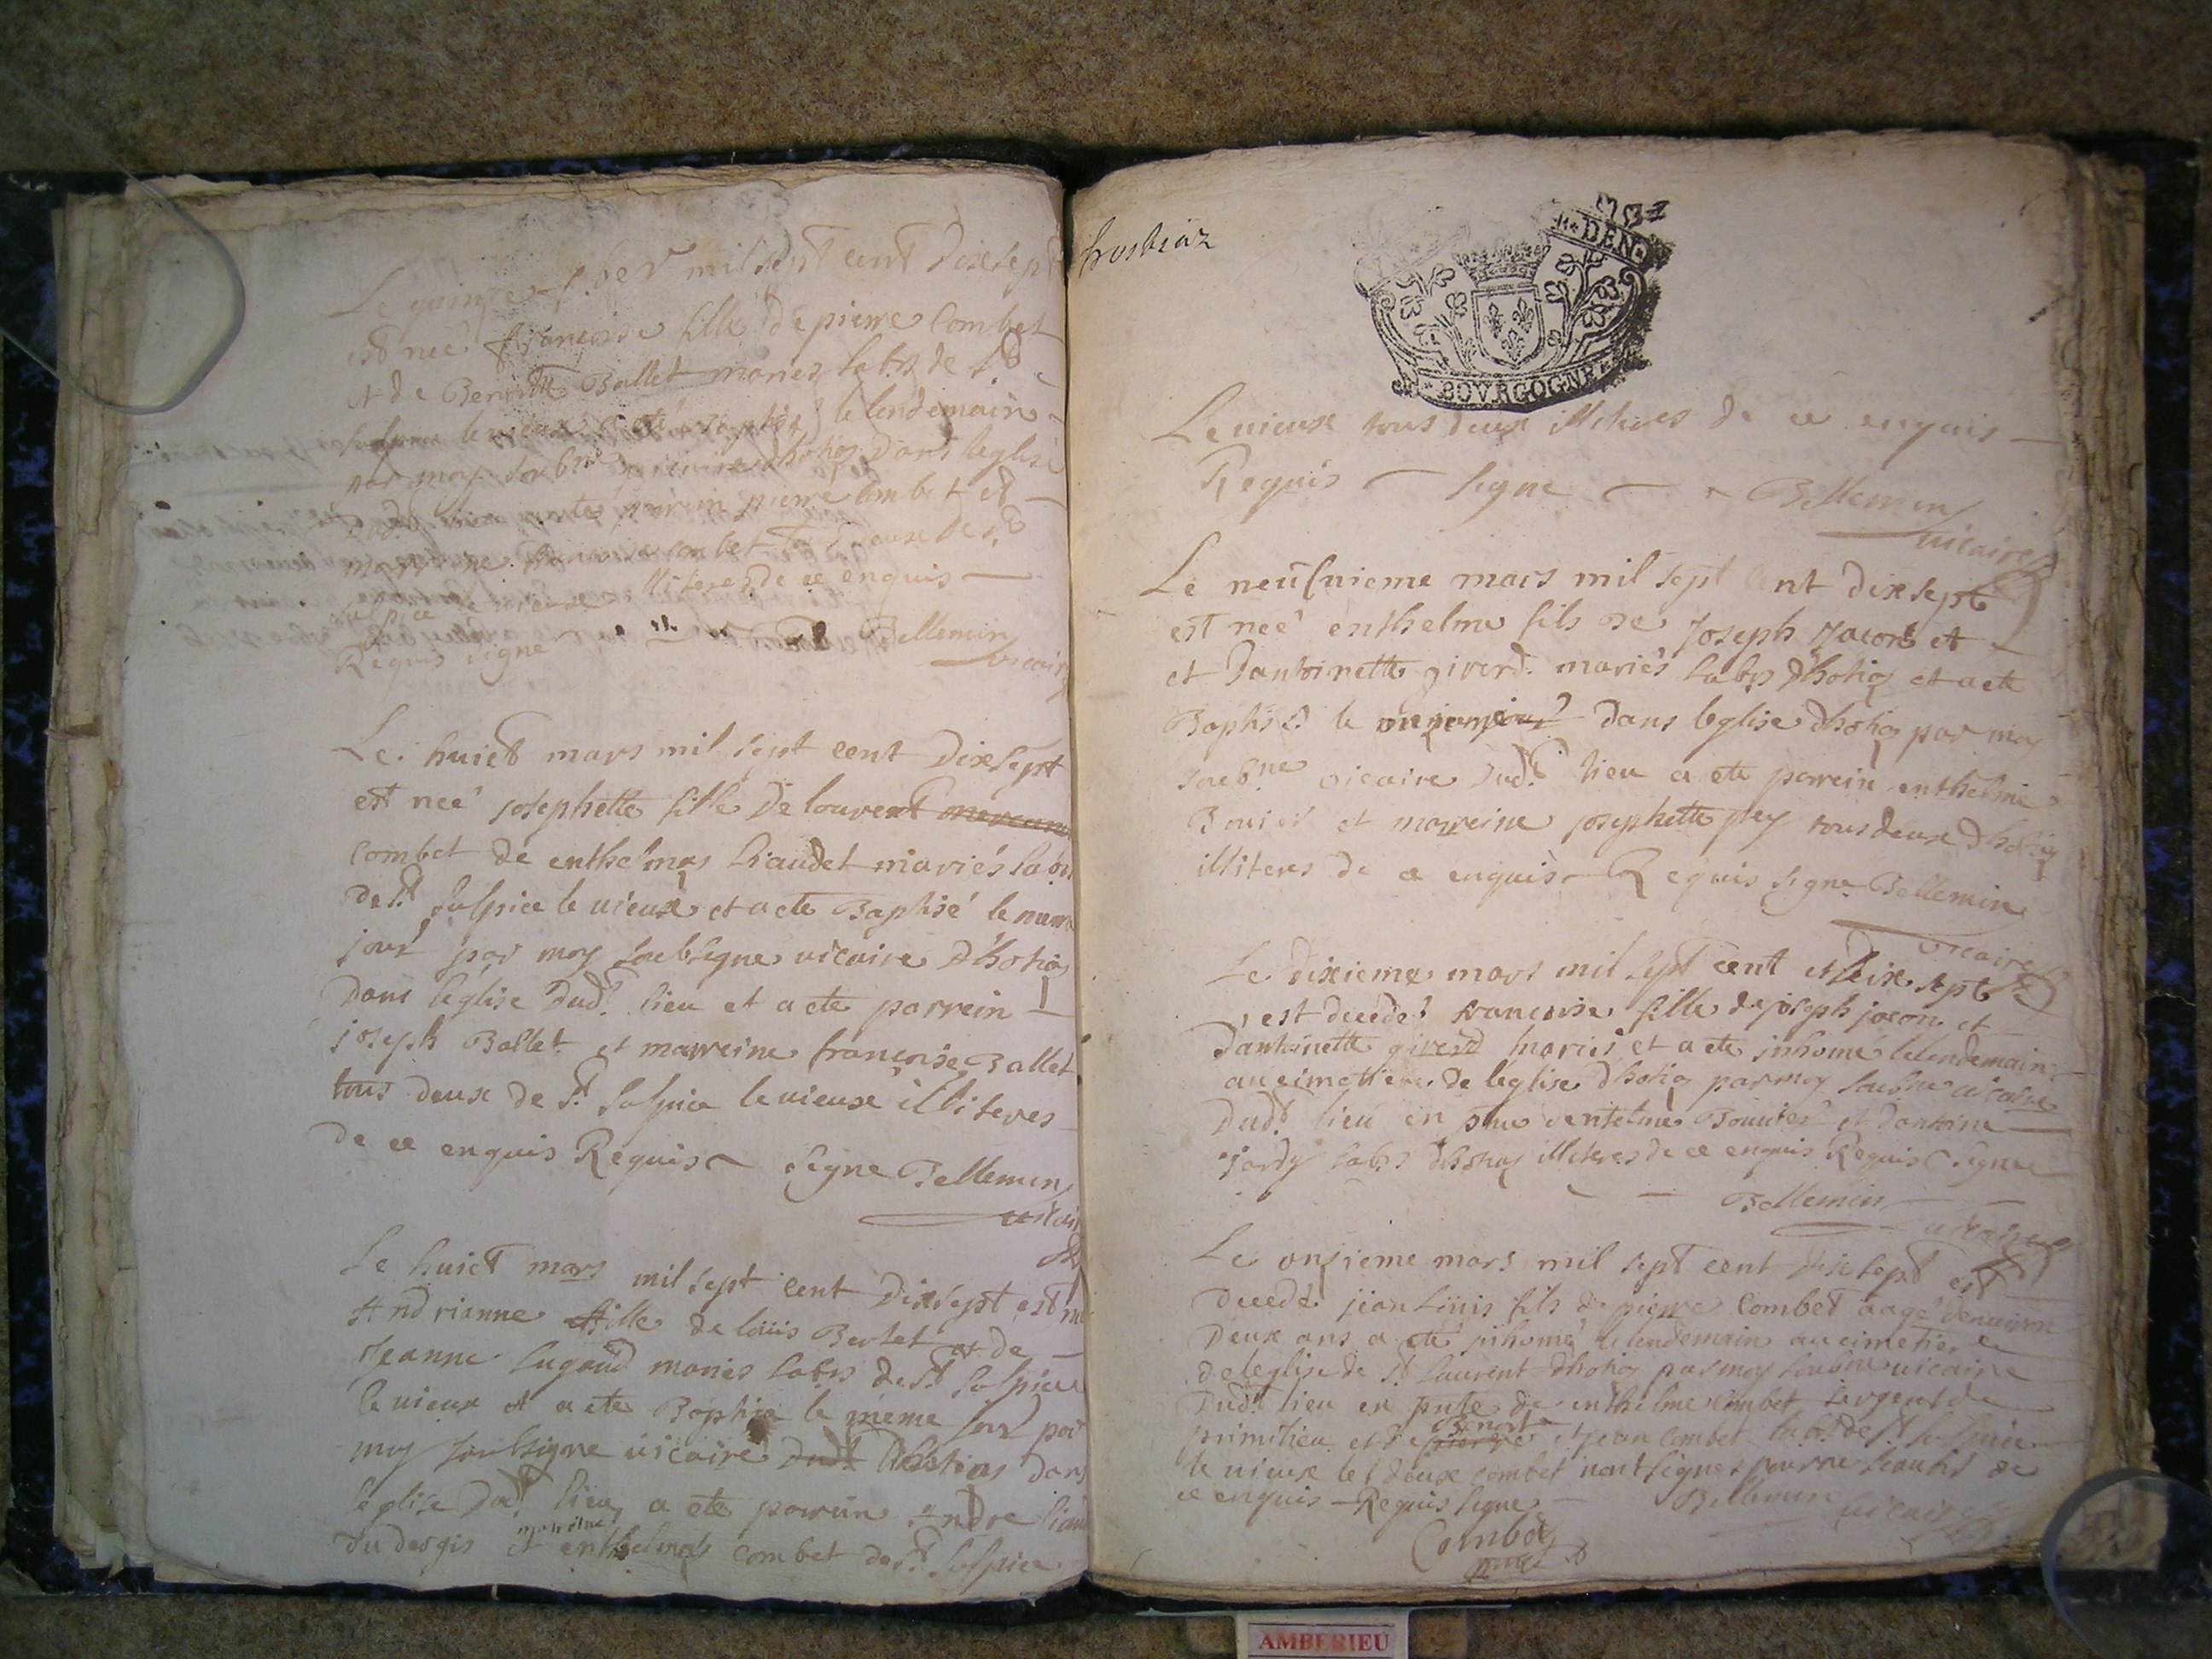 Le quinze mil sept cent dixsept
est neé francoise fille de pierre Combet
et de Benoitte Ballet maries labrs de St
Sulpice le vieux a eté baptisé le lendemain
par moy soubne vicaire dhotiq dans leglise
dud. lieu a ete parrein pierre Combet et
marreine francoise combet tous deux de St
Sulpice le vieux illiteres de ce enquis
Requis signe Bellemin
vicaire
Le huict mars mil sept cent dixsept
est neé josephette fille de louvent
Combet de enthelmaz Liaudet mariés labrs
de St Sulpice le vieux et a ete Baptisé le meme
jour par moy soubsigne vicaire dhotiq
Dans léglise dud. lieu et a ete parrein
joseph Ballet et marreine françoise Ballet
tous deux de St Sulpice le vieux illiteres
de ce enquis Requis signe Bellemin
vicair
Le huict mars mil sept cent dixsept est ne
Andrianne fille de loüis Bertet et de
Jeanne Lugand mariés labrs de St Sulpice
le vieux et a ete Baptise le meme jour par
moy soubsigne vicaire dud. dhotiq dans
léglise dud. lieu a ete parein Andre liau
du dergis et marreine enthelmaz combet de St Sulpice
DEN.
BOVRGOGNE
Le vieux tous deux illiteres de ce enquis
Requis signe Bellemin
vicaire
Le neufvieme mars mil sept cent dixsept
est neé enthelme fils de Joseph Jacon et
et Dantoinette giverd mariés labrs dhotiq et a ete
Baptisé le dans leglise dhotiq par moy
soubne vicaire dud. lieu a ete parrein enthelme
Bouvier et marreine josephette pey tous deux dhotiq
illiteres de ce enquis Requis signe Bellemin
vicaire
Le dixieme mars mil sept cent et dix sept
est decedeé francoise fille de joseph jacon et
Dantoinette giverd mariés et a ete inhumé le lendemain
au cimettiere de leglise dhotiq par moy soubne vicaire
Dud. lieu en pnce dentelme Bouvier et dantoine
jordy labrs dhotiq illiteres de ce enquis Requis signe
Bellemin
vicaire
Le onzieme mars mil sept cent dix sept est
Decedé jean Loüis fils de pierre Combet aagé denviron
Deux ans a eté inhumé le lendemain au cimetiere
de leglise de St Laurent dhotiq par moy soubne vicaire
Dud. lieu en pnce de enthelme Combet sergent de
primilieu et de Benoit et jean Combet labrs de St Sulpice
le vieux les deux Combet nont signes pour ne scavoir de
ce enquis Requis signe Bellemin vicaire
Combet
AMBERIEU